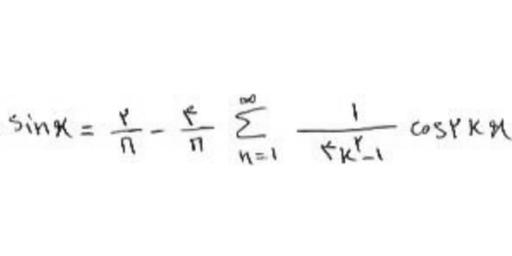 sinx = ۲/π - ۴/π ∑_{n=1}^{∞} 1/(۴k^۲-1) cos۲kx